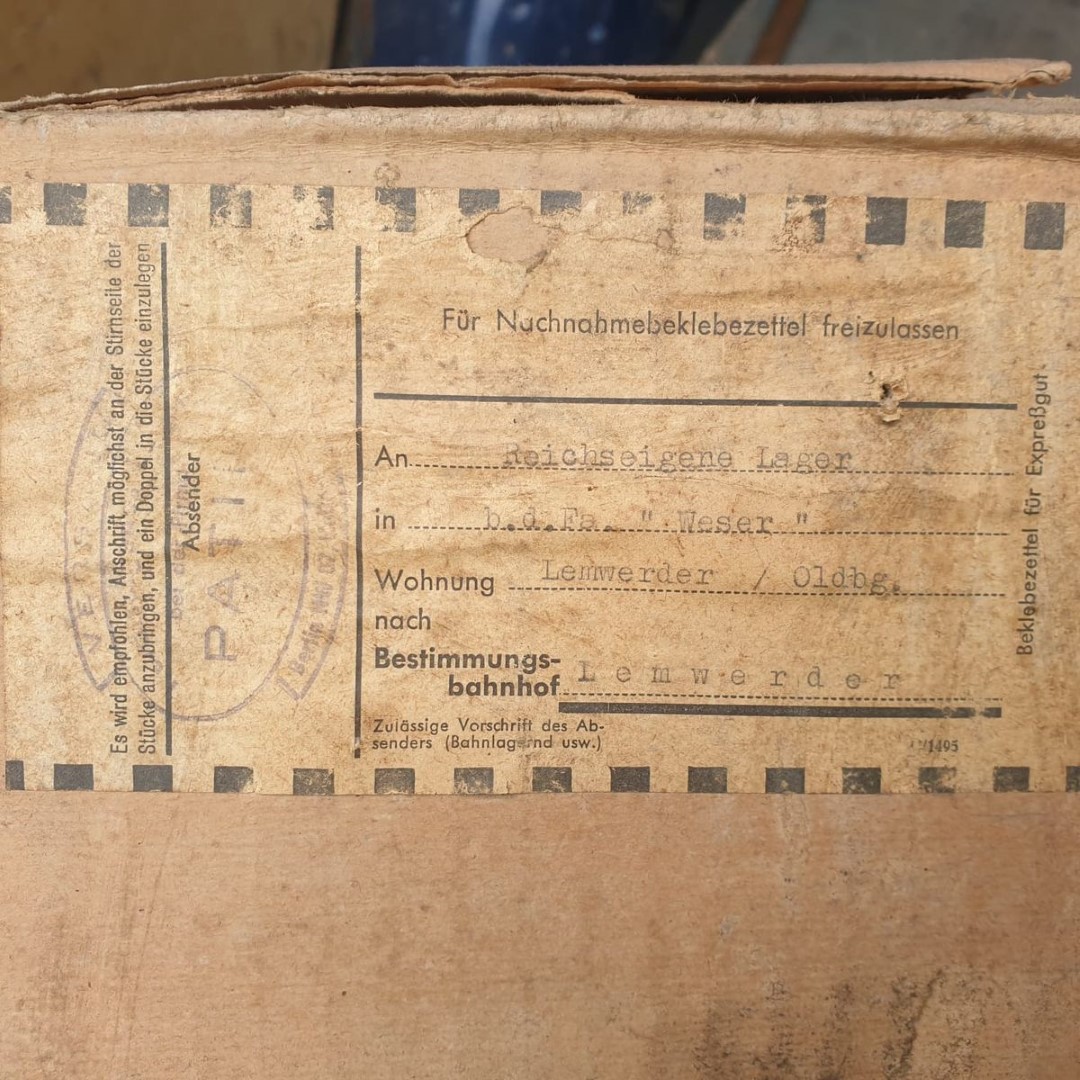 Es wird empfohlen, Anschrift möglichst an der Stirnseite der
Stücke anzubringen, und ein Doppel in die Stücke einzulegen
Absender
PATI
Berlin
Für Nachnahmebeklebezettel freizulassen
An Reichseigene Lager
in b.d.Fa. " Weser "
Wohnung Lemwerder / Oldbg.
nach
Bestimmungs-
bahnhof Lemwerder
Zulässige Vorschrift des Ab-
senders (Bahnlagernd usw.)
1495
Beklebezettel für Expreßgut